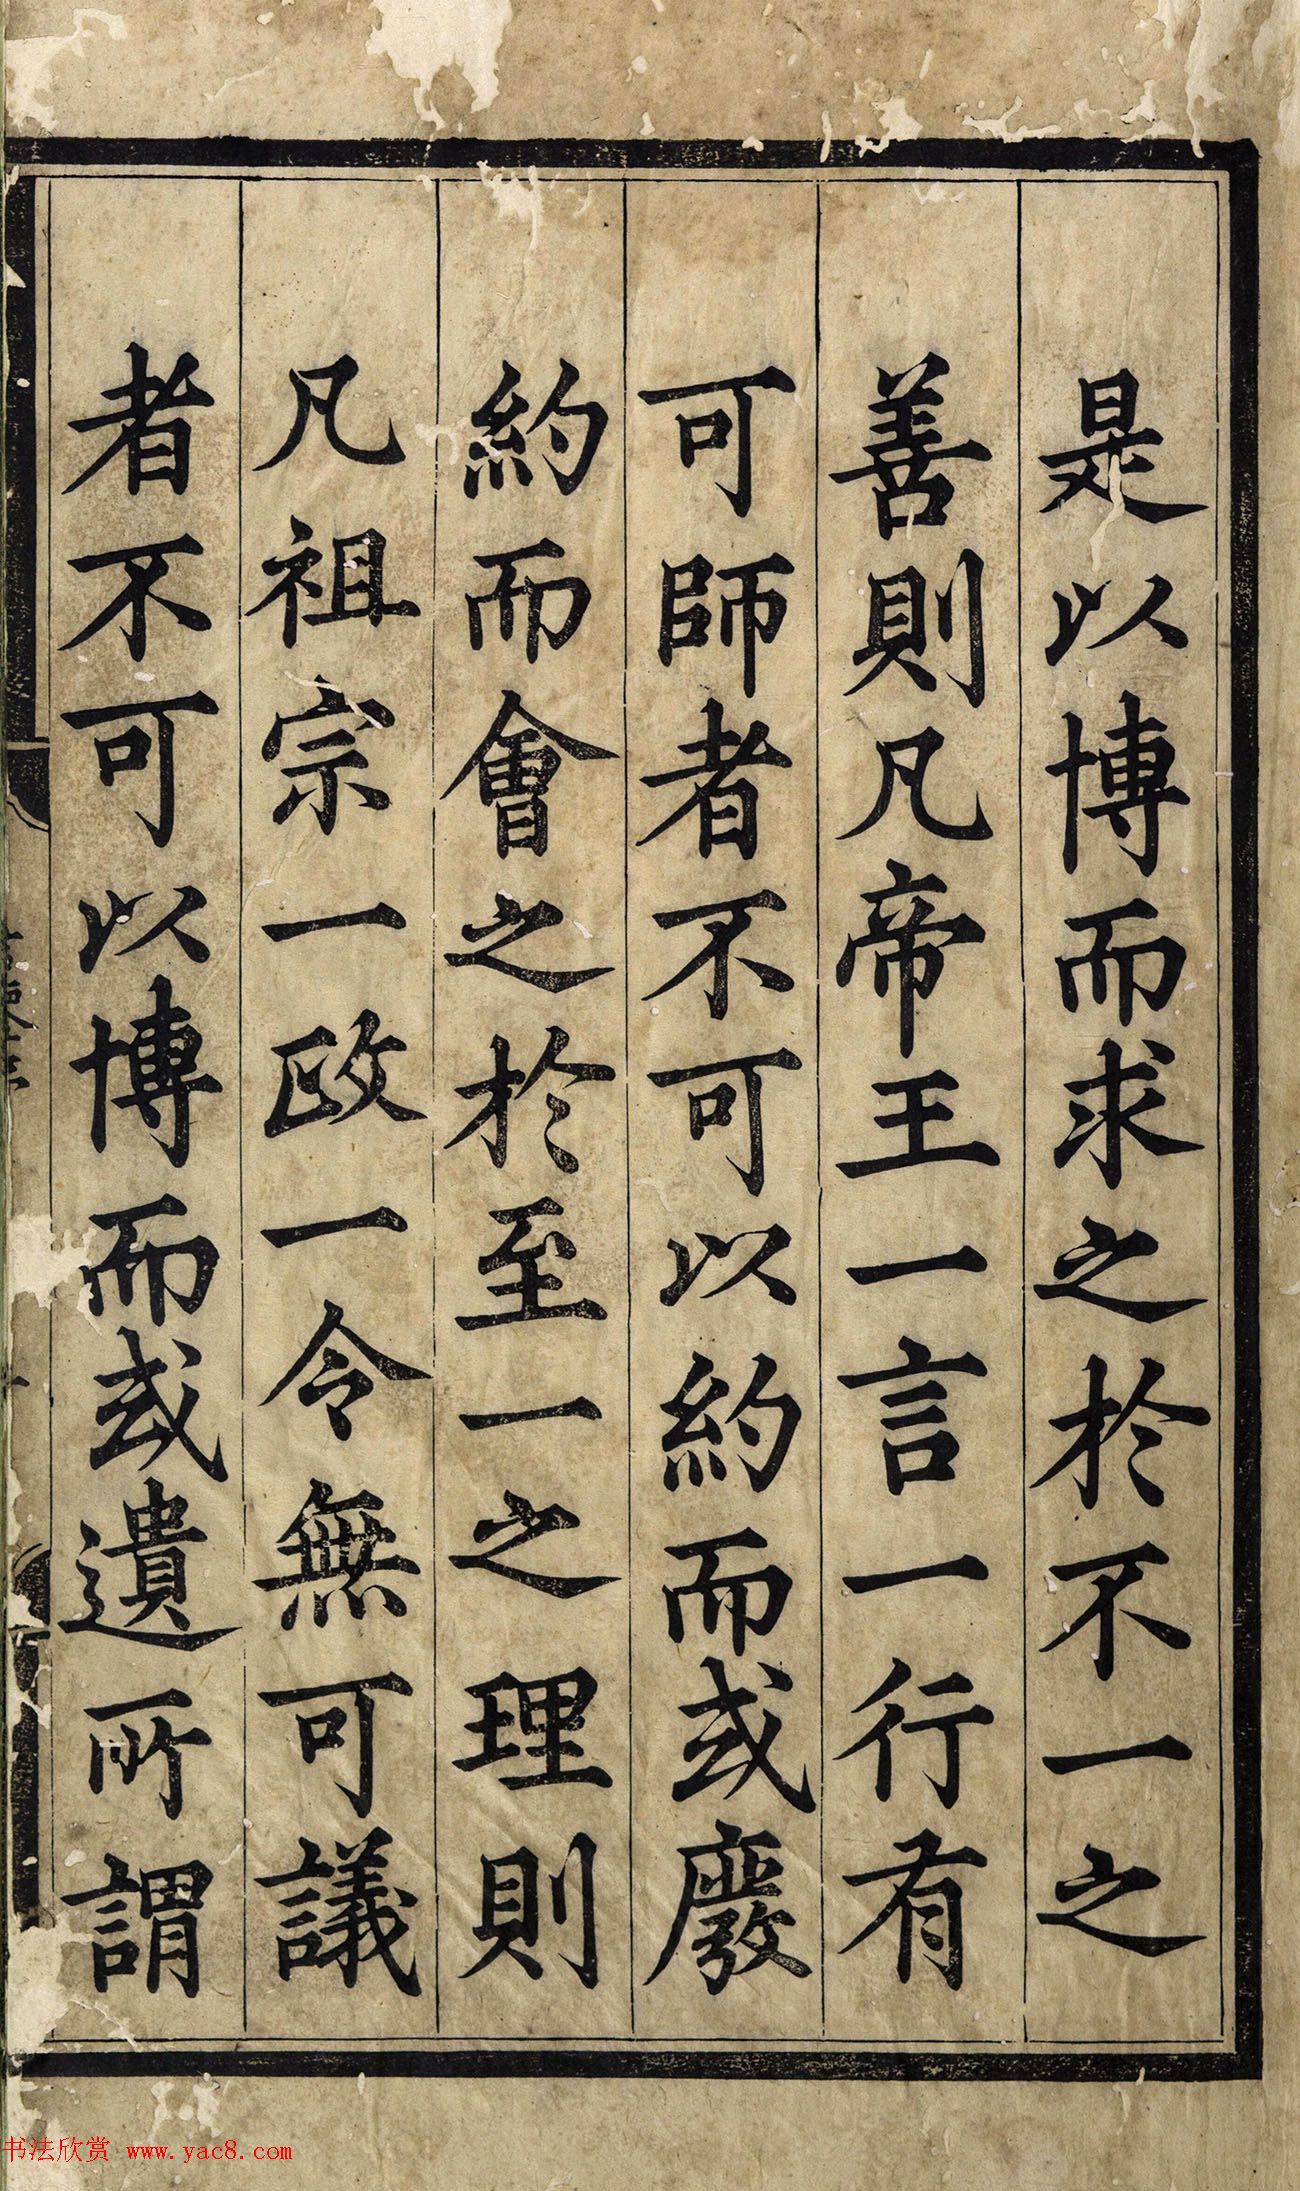 是以博而求之於不一之
善則凡帝王一言一行有
可師者不可以約而或廢
約而會之於至一之理則
凡祖宗一政一令無可議
者不可以博而或遺所謂
书法欣赏 www.yac8.com